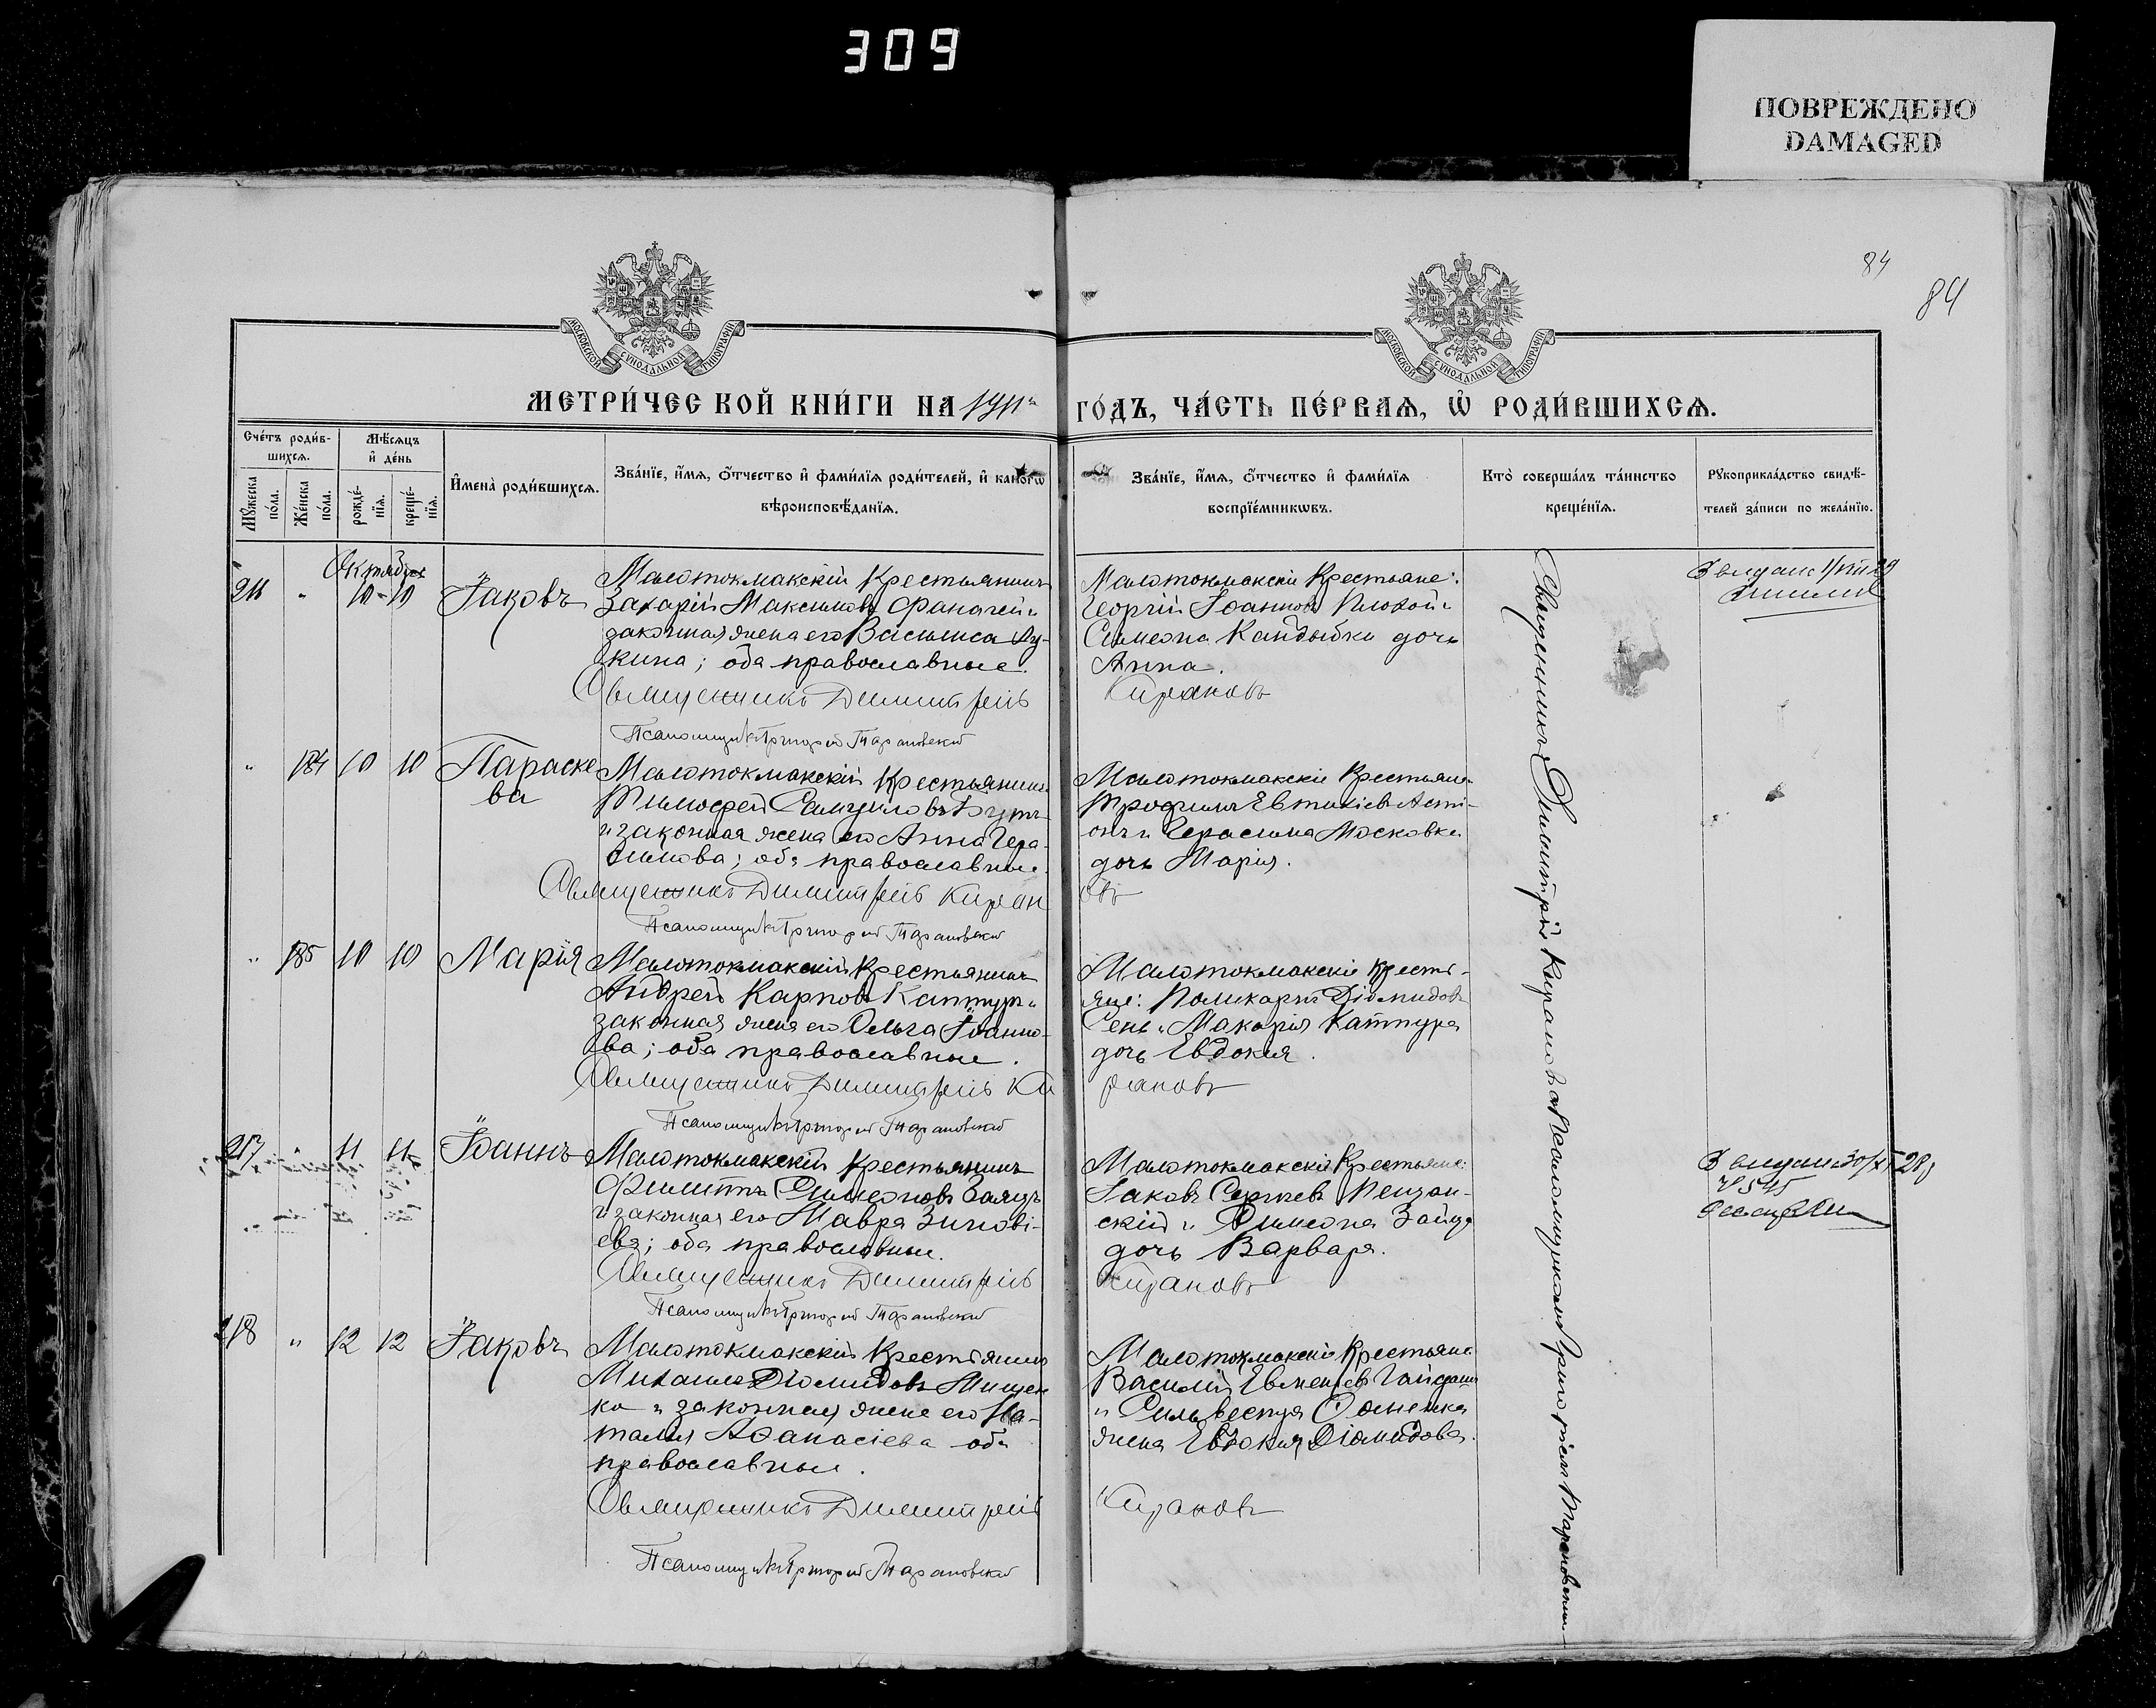 309
ПОВРЕЖДЕНО
DAMAGED
84
84
МОСКОВСКОЙ СУНОДАЛЬНОЙ ТИПОГРАФІИ
МОСКОВСКОЙ СУНОДАЛЬНОЙ ТИПОГРАФІИ
МЕТРИ́ЧЕСКОЙ КНИ́ГИ НА 1911й ГО́ДЪ, ЧА́СТЬ ПЕ́РВАѦ, Ѡ҆ РОДИ́ВШИХСѦ.
Сче́тъ роди́в-
шихсѧ.
Мꙋ́жеска по́ла.
Же́нска по́ла.
Мѣ́сѧцъ
и҆ де́нь
рожде́-
нїѧ.
креще́-
нїѧ.
И҆мена̀ роди́вшихсѧ.
Зва́нїе, и҆́мѧ, ѻ҆́тчество и҆ фами́лїѧ роди́телей, и҆ како́гѡ
вѣроисповѣ́данїѧ.
Зва́нїе, и҆́мѧ, ѻ҆́тчество и҆ фами́лїѧ
воспрїе́мникѡвъ.
Кто̀ соверша́лъ та́инство
креще́нїѧ.
Рꙋкоприкла́дство свидѣ́-
телей за́писи по жела́нїю.
Октября
216 " 10 10 Іаковъ
Малотокмакскій крестьянинъ
Захарій Максимовъ и
законная жена его Василиса Лу-
кина; оба православные.
Священникъ Димитрій
Кирановъ
Псаломщикъ Григорій Тарановскій
Малотокмакскіе крестьяне:
Георгій Іоанновъ Плохой и
Симеона Кандыбки дочь
Анна.
" 184 10 10 Параске
ва
Малотокмакскій крестьянинъ
Тимофей Самуиловъ Бутъ
и законная жена его Анна Гера-
симова; оба православные.
Священникъ Димитрій Киран
овъ
Псаломщикъ Григорій Тарановскій
Малотокмакскіе крестьяне
Трофимъ Евтихіевъ
и Герасима Московки
дочь Марія.
" 185 10 10 Марія
Малотокмакскій крестьянинъ
Андрей Карповъ Каптуръ и
законная жена его Ольга Іоанно-
ва; оба православные.
Священникъ Димитрій Ки
рановъ
Псаломщикъ Григорій Тарановскій
Малотокмакскіе крестьт-
яне: Поликарпъ Діомидовъ
Сень и Макарія Каптура
дочь Евдокія.
217 " 11 11 Іоаннъ
Малотокмакскій крестьянинъ
Филиппъ Симеоновъ Заяцъ
и законная его Мавра Зинові-
ева; оба православные.
Священникъ Димитрій
Кирановъ
Псаломщикъ Григорій Тарановскій
Малотокмакскіе крестьяне:
Іаковъ Сергіевъ
скій и Симеона Зайца
дочь Варвара.
218 " 12 12 Іаковъ
Малотокмакскій крестьянинъ
Михаилъ Діомидовъ Мищен
ко и законная жена его На-
талія Аѳанасіева оба
православные.
Священникъ Димитрій
Кирановъ
Псаломщикъ Григорій Тарановскій
Малотокмакскіе крестьяне
Василій Евменіевъ
и Сильвестра
жена Евдокія Діомидова.
Священникъ Димитрій Кирановъ съ псаломщикомъ Григоріемъ Тарановскимъ